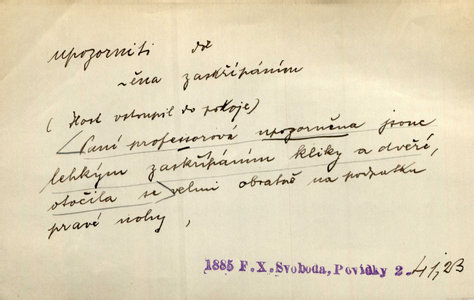 upozorniti dě
~ěna zaskřípáním
(Host vstoupil do pokoje)
Paní professorová upozorněna jsouc
lehkým zaskřípáním kliky a dveří,
otočila se velmi obratně na podpatku
pravé nohy,
1885 F.X.Svoboda, Povídky 2. 41,23